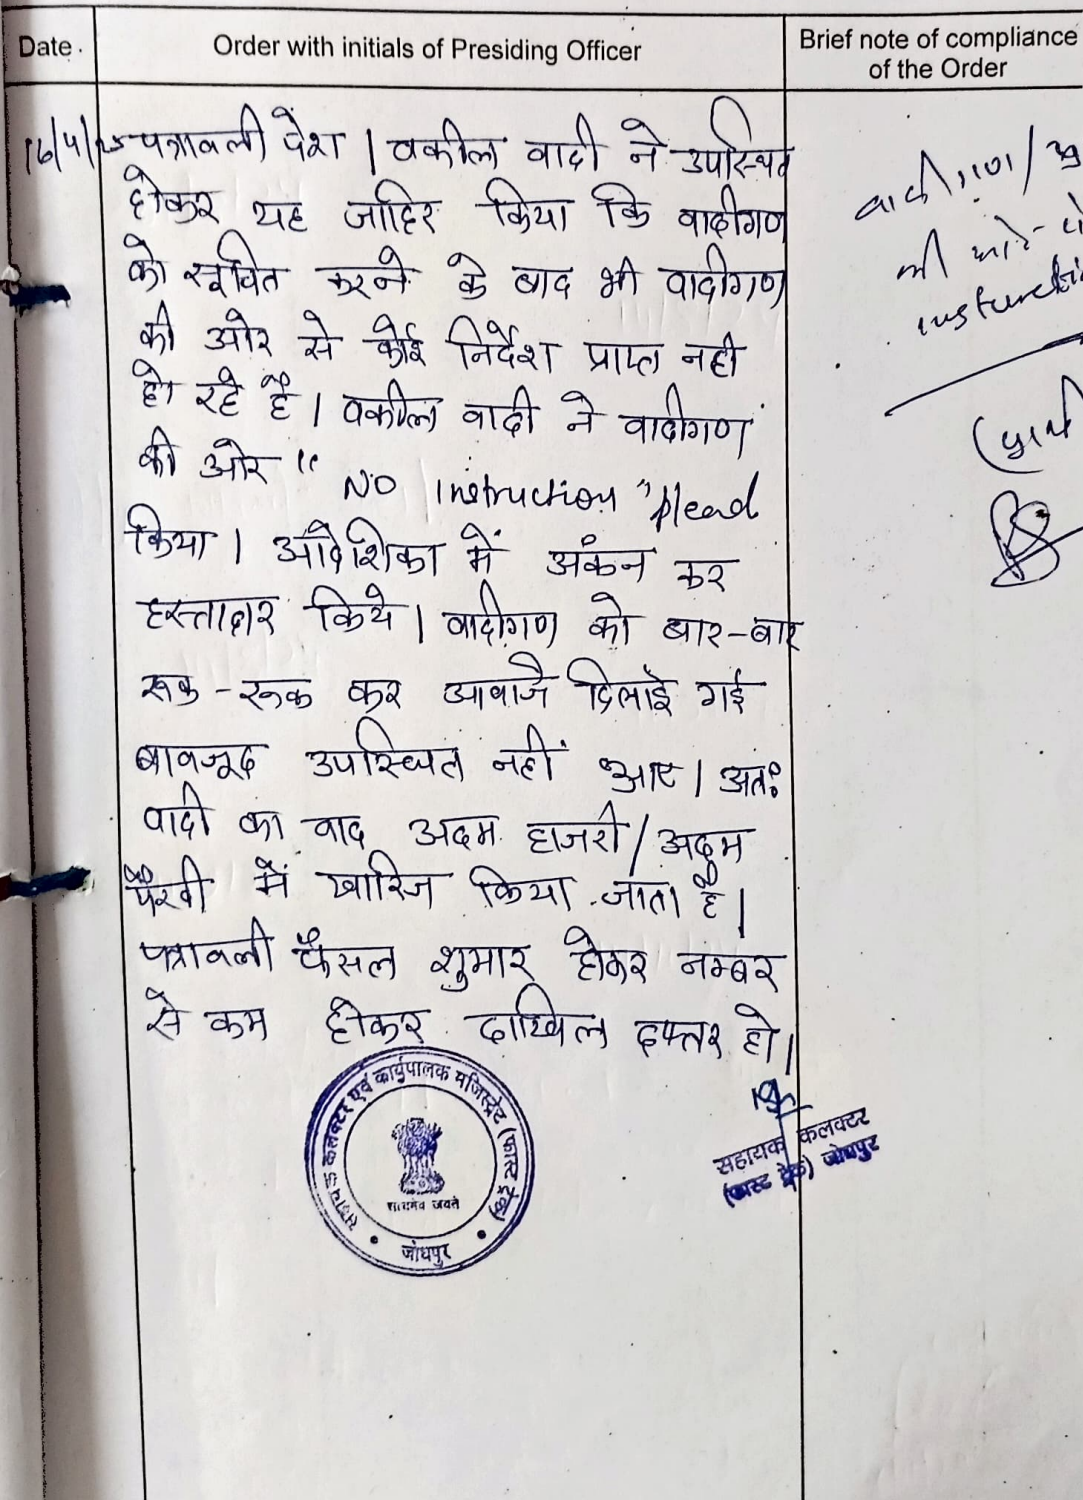 Date.
Order with initials of Presiding Officer
Brief note of compliance
of the Order
16/4/25 पत्रावली पेश। वकील वादी ने उपस्थित
होकर यह जाहिर किया कि वादीगण
को सूचित करने के बाद भी वादीगण
की ओर से कोई निर्देश प्राप्त नही
हो रहे है। वकील वादी ने वादीगण
की ओर "No Instruction" plead
किया। आदेशिका में अंकन कर
हस्ताक्षर किये। वादीगण को बार-बार
रूक-रूक कर आवाजे दिलाई गई
बावजूद उपस्थित नहीं आए। अतः
वादी का वाद अदम हाजरी/अदम
पैरवी में खारिज किया जाता है।
पत्रावली फैसल शुमार होकर नम्बर
से कम होकर दाखिल दफ्तर हो।
वादीगण/
की ओर से
सहायक कलक्टर एवं कार्यपालक मजिस्ट्रेट (फास्ट ट्रेक)
सत्यमेव जयते
जोधपुर
सहायक कलक्टर
(फास्ट ट्रेक) जोधपुर